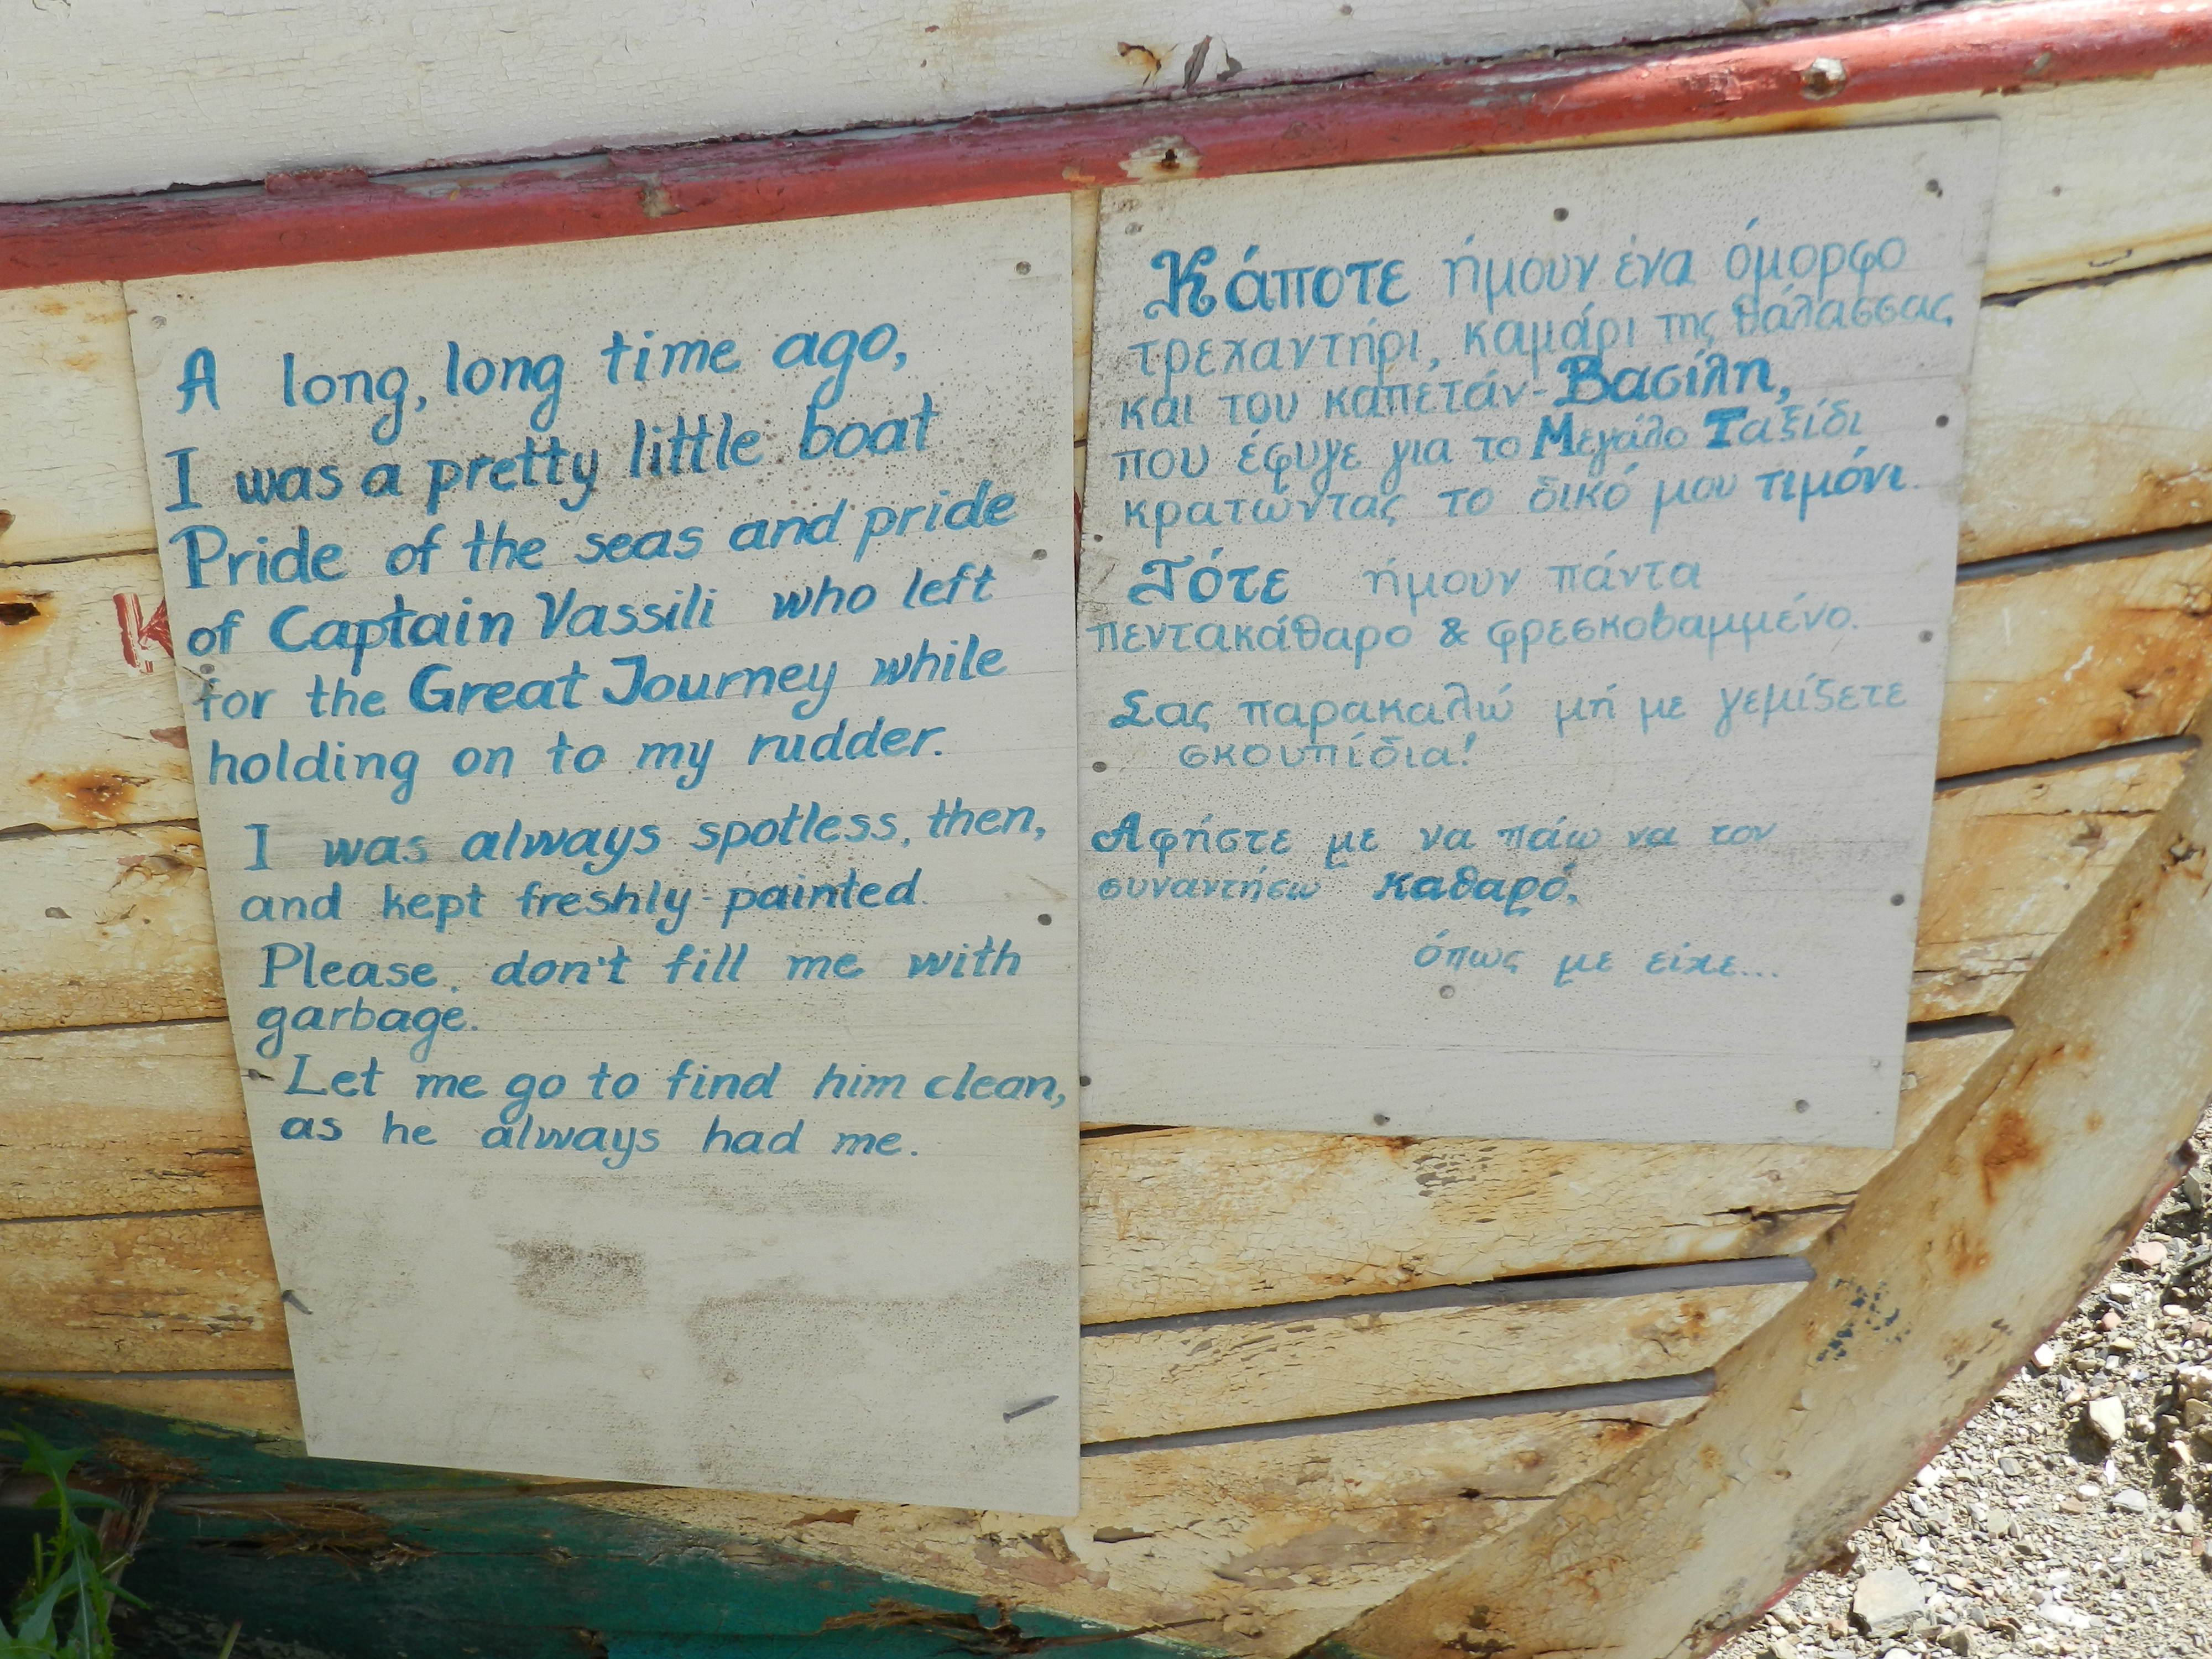 A long, long time ago,
I was a pretty little boat
Pride of the seas and pride
of Captain Vassili who left
for the Great Journey while
holding on to my rudder.
I was always spotless, then,
and kept freshly-painted.
Please, don't fill me with
garbage.
Let me go to find him clean,
as he always had me.
Κάποτε ήμουν ένα όμορφο
τρεχαντήρι, καμάρι της θάλασσας
και του καπετάν-Βασίλη,
που έφυγε για το Μεγάλο Ταξίδι
κρατώντας το δικό μου τιμόνι.
Τότε ήμουν πάντα
πεντακάθαρο & φρεσκοβαμμένο.
Σας παρακαλώ μή με γεμίζετε
σκουπίδια!
Αφήστε με να πάω να τον
συναντήσω καθαρό,
όπως με είχε...
K